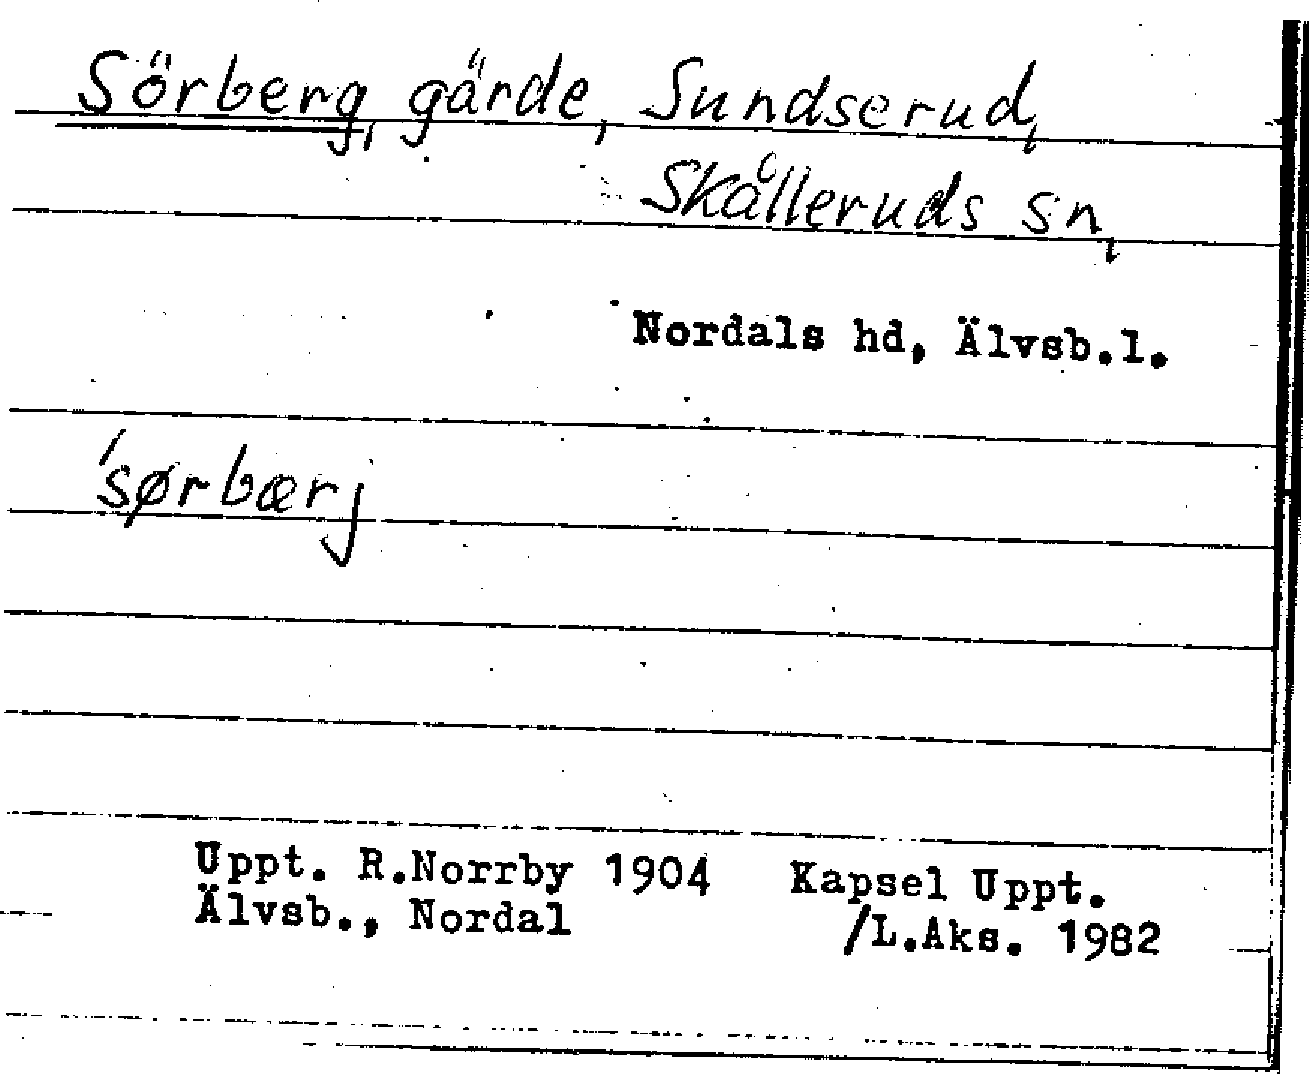 Sörberg, gärde, Sundserud,
Skålleruds sn,
Nordals hd, Älvsb.l.
'sørbærj
Uppt. R.Norrby 1904 Kapsel Uppt.
Älvsb., Nordal /L.Aks. 1982